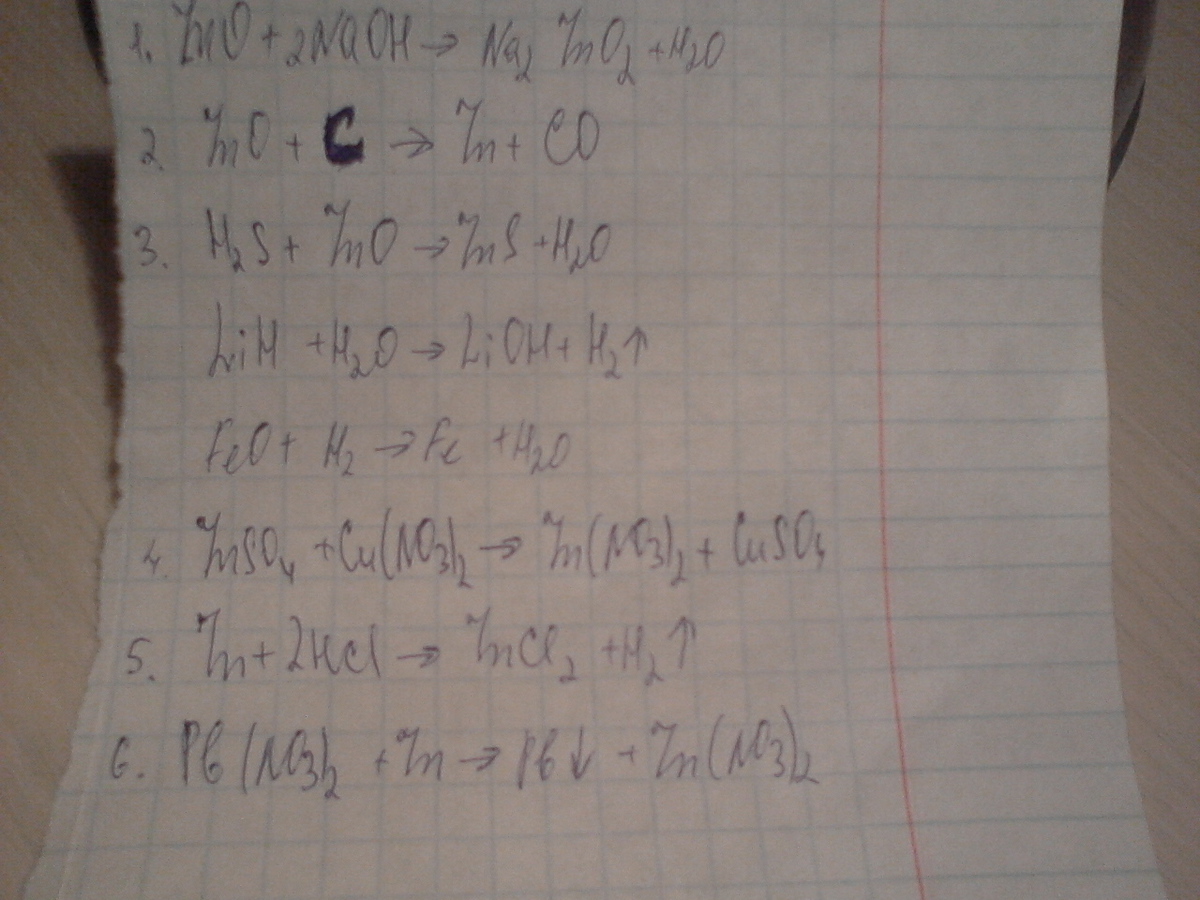 1. ZnO + 2NaOH → Na₂ZnO₂ + H₂O
2. ZnO + C → Zn + CO
3. H₂S + ZnO → ZnS + H₂O
LiH + H₂O → LiOH + H₂↑
FeO + H₂ → Fe + H₂O
4. ZnSO₄ + Cu(NO₃)₂ → Zn(NO₃)₂ + CuSO₄
5. Zn + 2HCl → ZnCl₂ + H₂↑
6. Pb(NO₃)₂ + Zn → Pb↓ + Zn(NO₃)₂